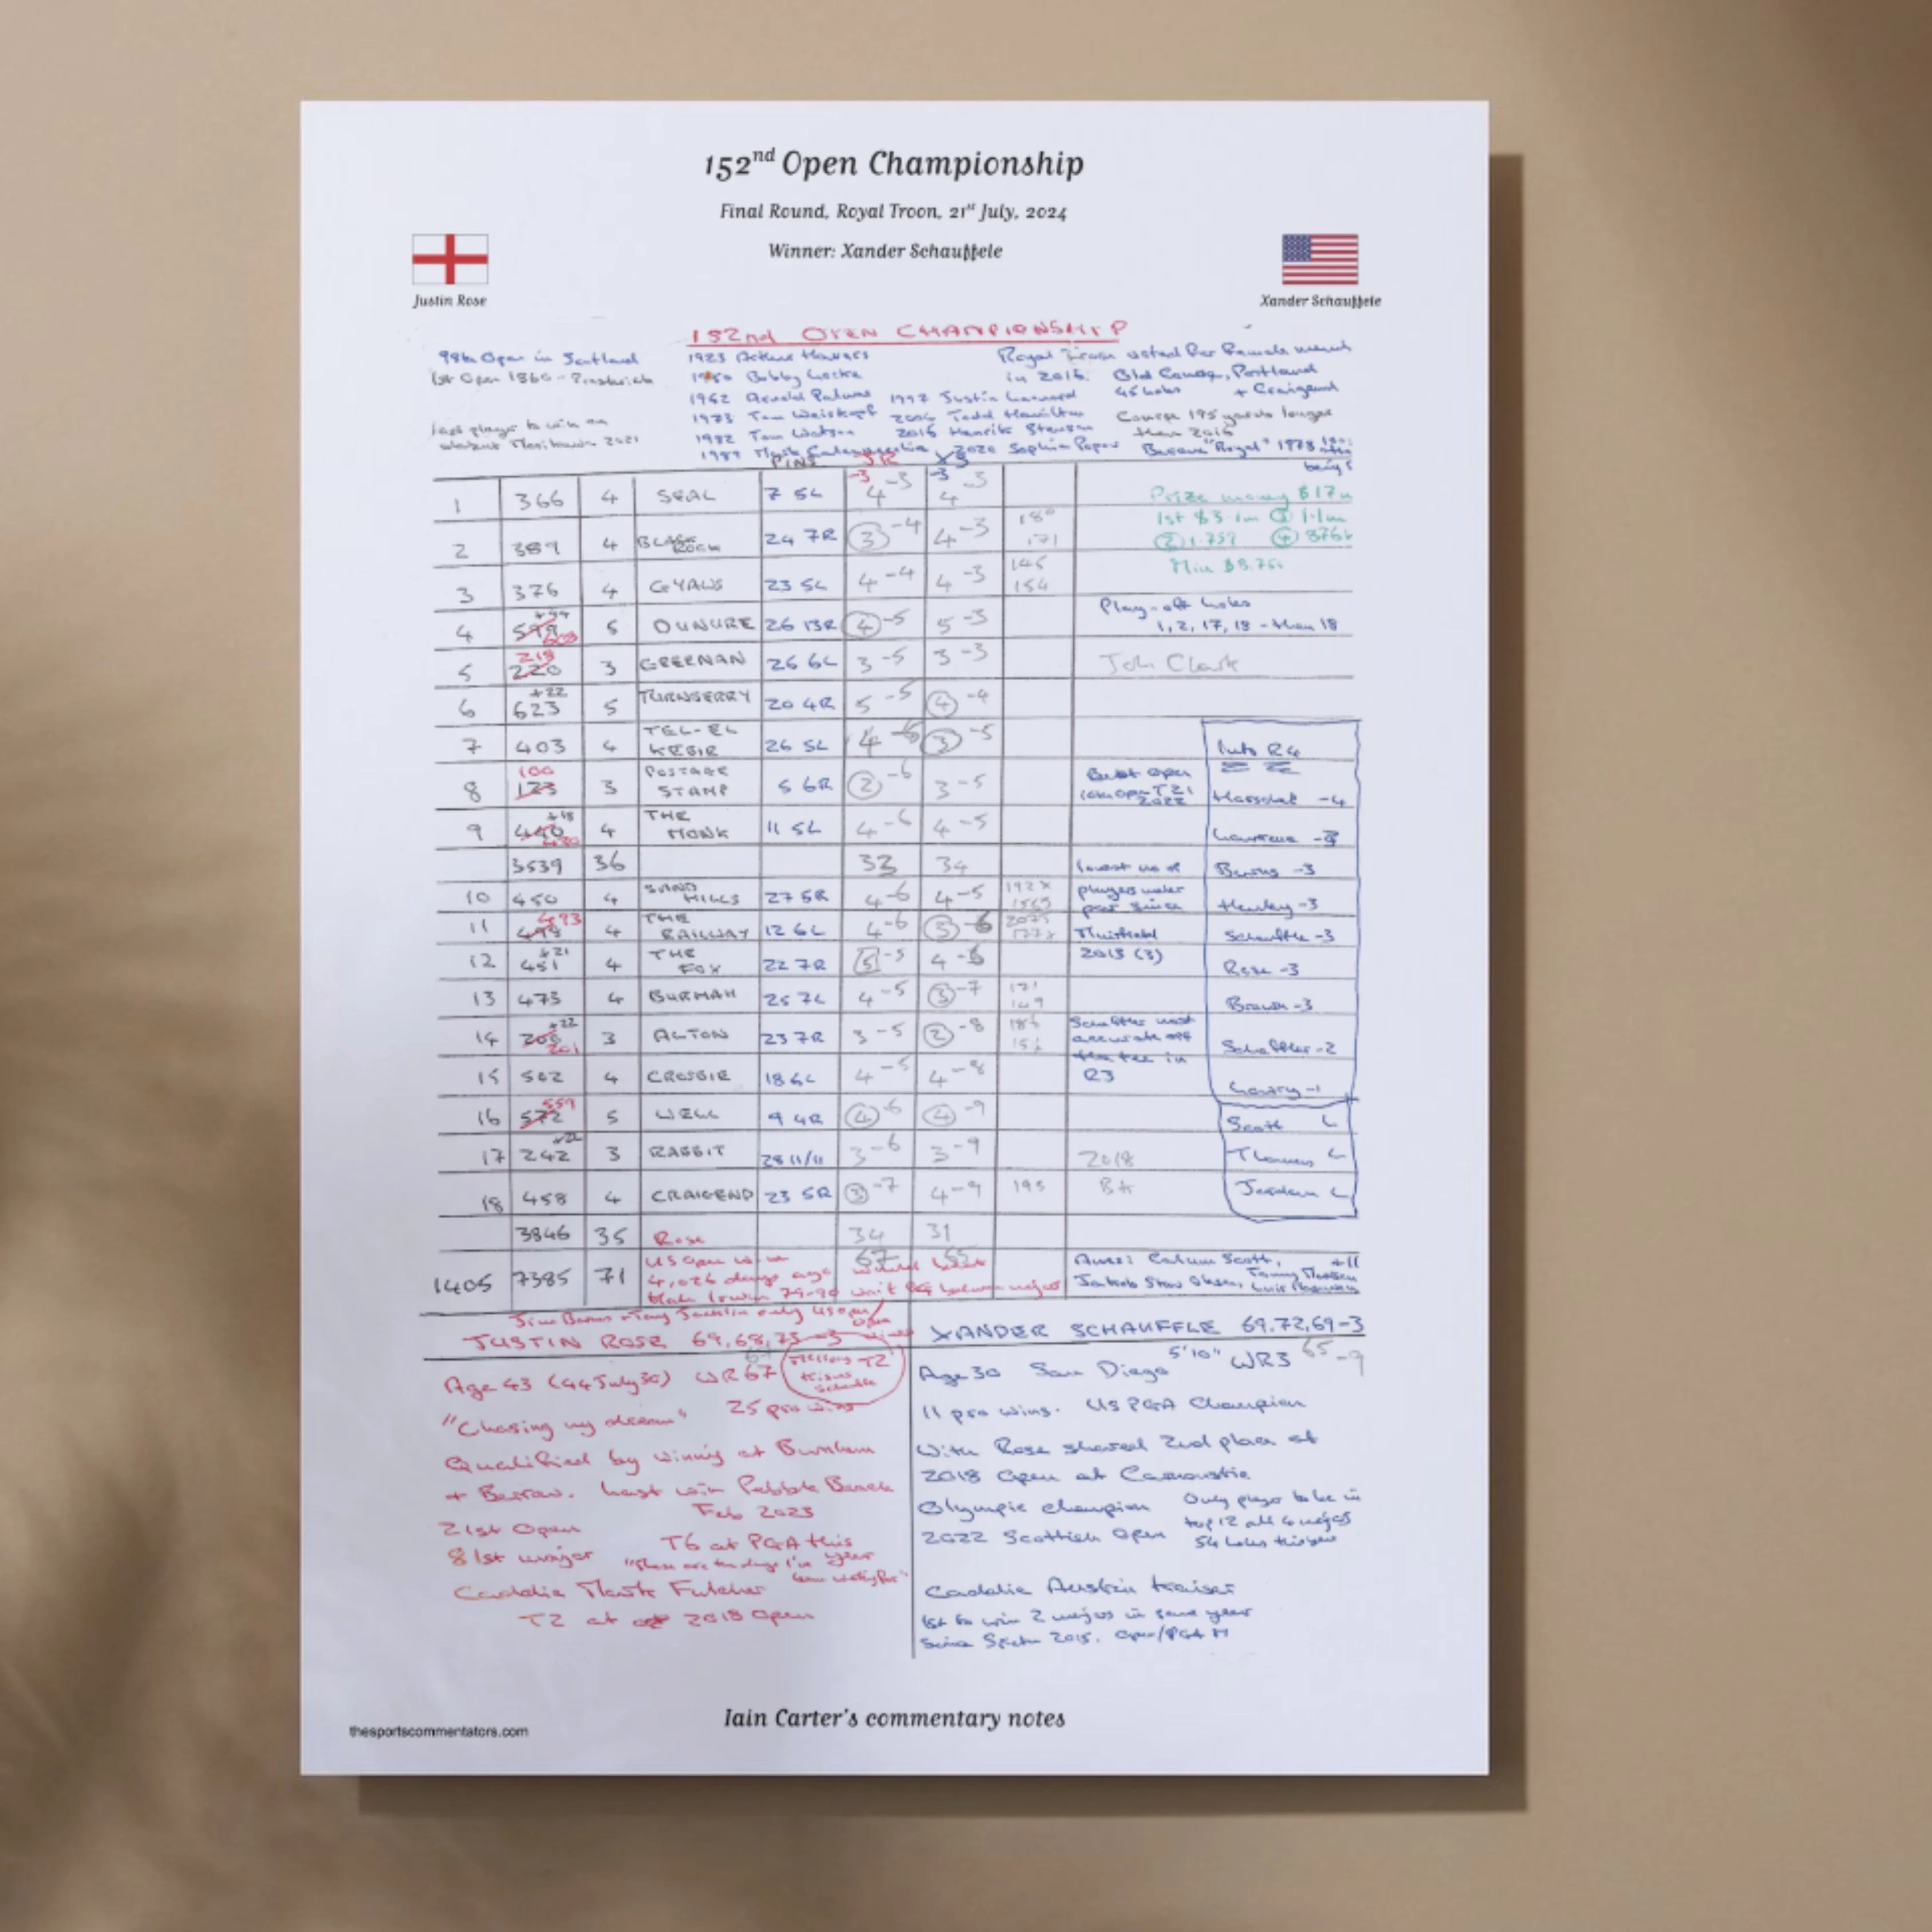 152nd Open Championship
Final Round, Royal Troon, 21st July, 2024
Winner: Xander Schauffele
Justin Rose
Xander Schauffele
152nd OPEN CHAMPIONSHIP
98th Open in Scotland
1st Open 1860 - Prestwick
1923 Arthur Havers
1950 Bobby Locke
1962 Arnold Palmer 1997 Justin Leonard
1973 Tom Weiskopf 2004 Todd Hamilton
1982 Tom Watson 2016 Henrik Stenson
1989 Mark Calcavecchia 2020 Sophia Popov
Royal Troon voted for female
in 2016. Old Course, Portland
45 holes + Craigend
Course 195 yards longer
than 2016
Became "Royal" 1978
PINS JR XS
-3 -3
1 366 4 SEAL 7 5L 4 -3 4 -3
Prize money $17m
2 389 4 BLACK ROCK 24 7R 3 -4 4 -3 180 171
1st $3.1m 3 1.1m
2 1.759 4 876k
3 376 4 GYAWS 23 5L 4 -4 4 -3 145 154
Min $8.75k
4 +44 599 5 DUNURE 26 13R 4 -5 5 -3
Play-off holes
1, 2, 17, 18 - then 18
5 218 220 3 GREENAN 26 6L 3 -5 3 -3
6 +22 623 5 TURNBERRY 20 4R 5 -5 4 -4
7 403 4 TEL-EL KEBIR 26 5L 4 3 -5
Into R4
8 100 123 3 POSTAGE STAMP 5 6R 2 -6 3 -5
Best Open
Horschel -4
9 +18 440 4 THE MONK 11 5L 4 -6 4 -5
Lawrence -3
3539 36 33 34
Lowest no of
Burns -3
10 450 4 SANDHILLS 27 5R 4 -6 4 -5
players under
par since
Henley -3
11 493 498 4 THE RAILWAY 12 6L 4 -6 3 -6
Muirfield
Schauffle -3
12 +21 451 4 THE FOX 22 7R 5 -5 4 -6
2013 (3)
Rose -3
13 473 4 BURMAH 25 7L 4 -5 3 -7
Brown -3
14 +22 200 201 3 AILTON 23 7R 3 -5 2 -8
Scheffler most
accurate off
the tee in
R3
Scheffler -2
15 502 4 CROSBIE 18 6L 4 -5 4 -8
Lowry -1
16 559 572 5 WELL 9 4R 4 -6 4 -9
Scott L
17 +22 242 3 RABBIT 28 11/11 3 -6 3 -9
2018
Thomas L
18 458 4 CRAIGEND 23 5R 3 -7 4 -9 195
Jordan L
3846 35 Rose 34 31
1405 7385 71
US Open win
4,026 days ago would beat
67 65
Ams: Calum Scott,
JUSTIN ROSE 69,68,73 -3
XANDER SCHAUFFLE 69,72,69 -3
Age 43 (44 July 30) WR67
"Chasing my dream" 25 pro wins
Qualified by winning at Burnham
+ Berrow. Last win Pebble Beach
Feb 2023
21st Open T6 at PGA this
81st major year
Caddie Mark Fulcher
T2 at 2018 Open
Age 30 San Diego 5'10" WR3 65 -9
11 pro wins. US PGA Champion
With Rose shared 2nd place at
2018 Open at Carnoustie
Olympic champion Only player to be in
2022 Scottish Open top 12 all 4 majors
54 holes this year
Caddie Austin Kaiser
1st to win 2 majors in same year
Iain Carter's commentary notes
thesportscommentators.com